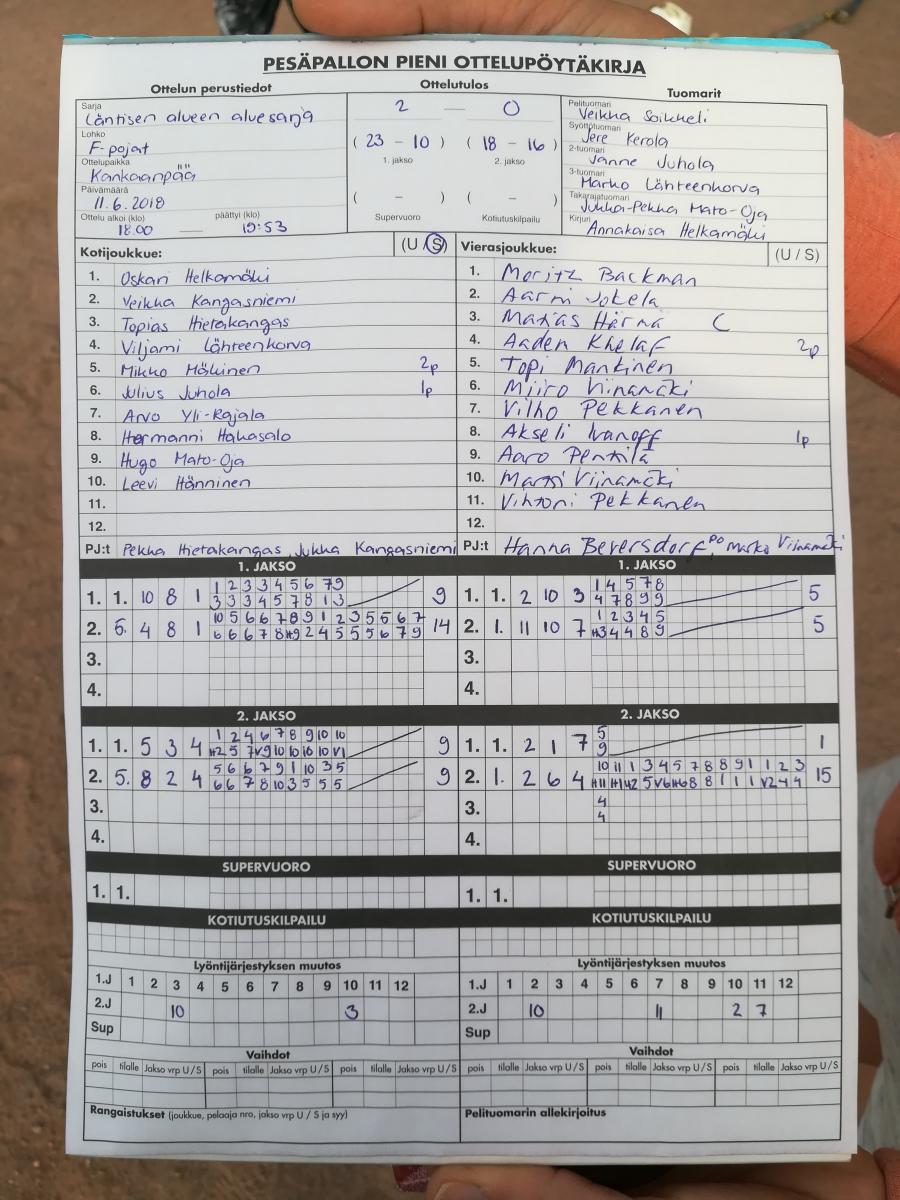 PESÄPALLON PIENI OTTELUPÖYTÄKIRJA
Ottelun perustiedot
Ottelutulos
Tuomarit
Sarja
Läntisen alueen aluesarja
Lohko
F-pojat
Ottelupaikka
Kankaanpää
Päivämäärä
11.6.2018
Ottelu alkoi (klo) päättyi (klo)
18.00 — 19:53
2 — 0
( 23 - 10 ) ( 18 - 16 )
1. jakso 2. jakso
( - ) ( - )
Supervuoro Kotiutuskilpailu
Pelituomari
Veikka Soikkeli
Syöttötuomari
Jere Kerola
2-tuomari
Janne Juhola
3-tuomari
Marko Lähteenkorva
Takarajatuomari
Jukka-Pekka Mato-Oja
Kirjuri
Annakaisa Helkamäki
Kotijoukkue: (U / S)
1. Oskari Helkamäki
2. Veikka Kangasniemi
3. Topias Hietakangas
4. Viljami Lähteenkorva
5. Mikko Mäkinen 2p
6. Julius Juhola 1p
7. Arvo Yli-Rajala
8. Hermanni Hakasalo
9. Hugo Mato-Oja
10. Leevi Hänninen
11.
12.
PJ:t Pekka Hietakangas, Jukka Kangasniemi
Vierasjoukkue: (U / S)
1. Moritz Backman
2. Aarni Jokela
3. Matias Härmä C
4. Aaden Khelaf 2p
5. Topi Mantinen
6. Miiro Viinamäki
7. Vilho Pekkanen
8. Akseli Ivanoff 1p
9. Aaro Penttilä
10. Martti Viinamäki
11. Vihtori Pekkanen
12.
PJ:t Hanna Beversdorf, PO Marko Viinamäki
1. JAKSO
1. 1. 10 8 1 1 2 3 3 4 5 6 7 9 9
3 3 3 4 5 7 8 1 3
2. 6. 4 8 1 10 5 6 6 7 8 9 1 2 3 5 5 6 7 14
6 6 6 7 8 H9 2 4 5 5 5 6 7 9
3.
4.
1. JAKSO
1. 1. 2 10 3 1 4 5 7 8 5
4 7 8 9 9
2. 1. 11 10 7 1 2 3 4 5 5
H3 4 4 8 9
3.
4.
2. JAKSO
1. 1. 5 3 4 1 2 4 6 7 8 9 10 10 9
H2 5 7 V9 10 10 10 10 V1
2. 5. 8 2 4 5 6 6 7 9 1 10 3 5 9
6 6 7 8 10 3 5 5 5
3.
4.
2. JAKSO
1. 1. 2 1 7 5 1
9
2. 1. 2 6 4 10 11 1 3 4 5 7 8 8 9 1 1 2 3 15
3. 4
4
4.
SUPERVUORO
1. 1.
SUPERVUORO
1. 1.
KOTIUTUSKILPAILU
KOTIUTUSKILPAILU
Lyöntijärjestyksen muutos
1.J 1 2 3 4 5 6 7 8 9 10 11 12
2.J 10 3
Sup
Lyöntijärjestyksen muutos
1.J 1 2 3 4 5 6 7 8 9 10 11 12
2.J 10 11 2 7
Sup
Vaihdot
pois tilalle Jakso vrp U/S pois tilalle Jakso vrp U/S pois tilalle Jakso vrp U/S
Vaihdot
pois tilalle Jakso vrp U/S pois tilalle Jakso vrp U/S pois tilalle Jakso vrp U/S
Rangaistukset (joukkue, pelaaja nro, jakso vrp U / S ja syy)
Pelituomarin allekirjoitus